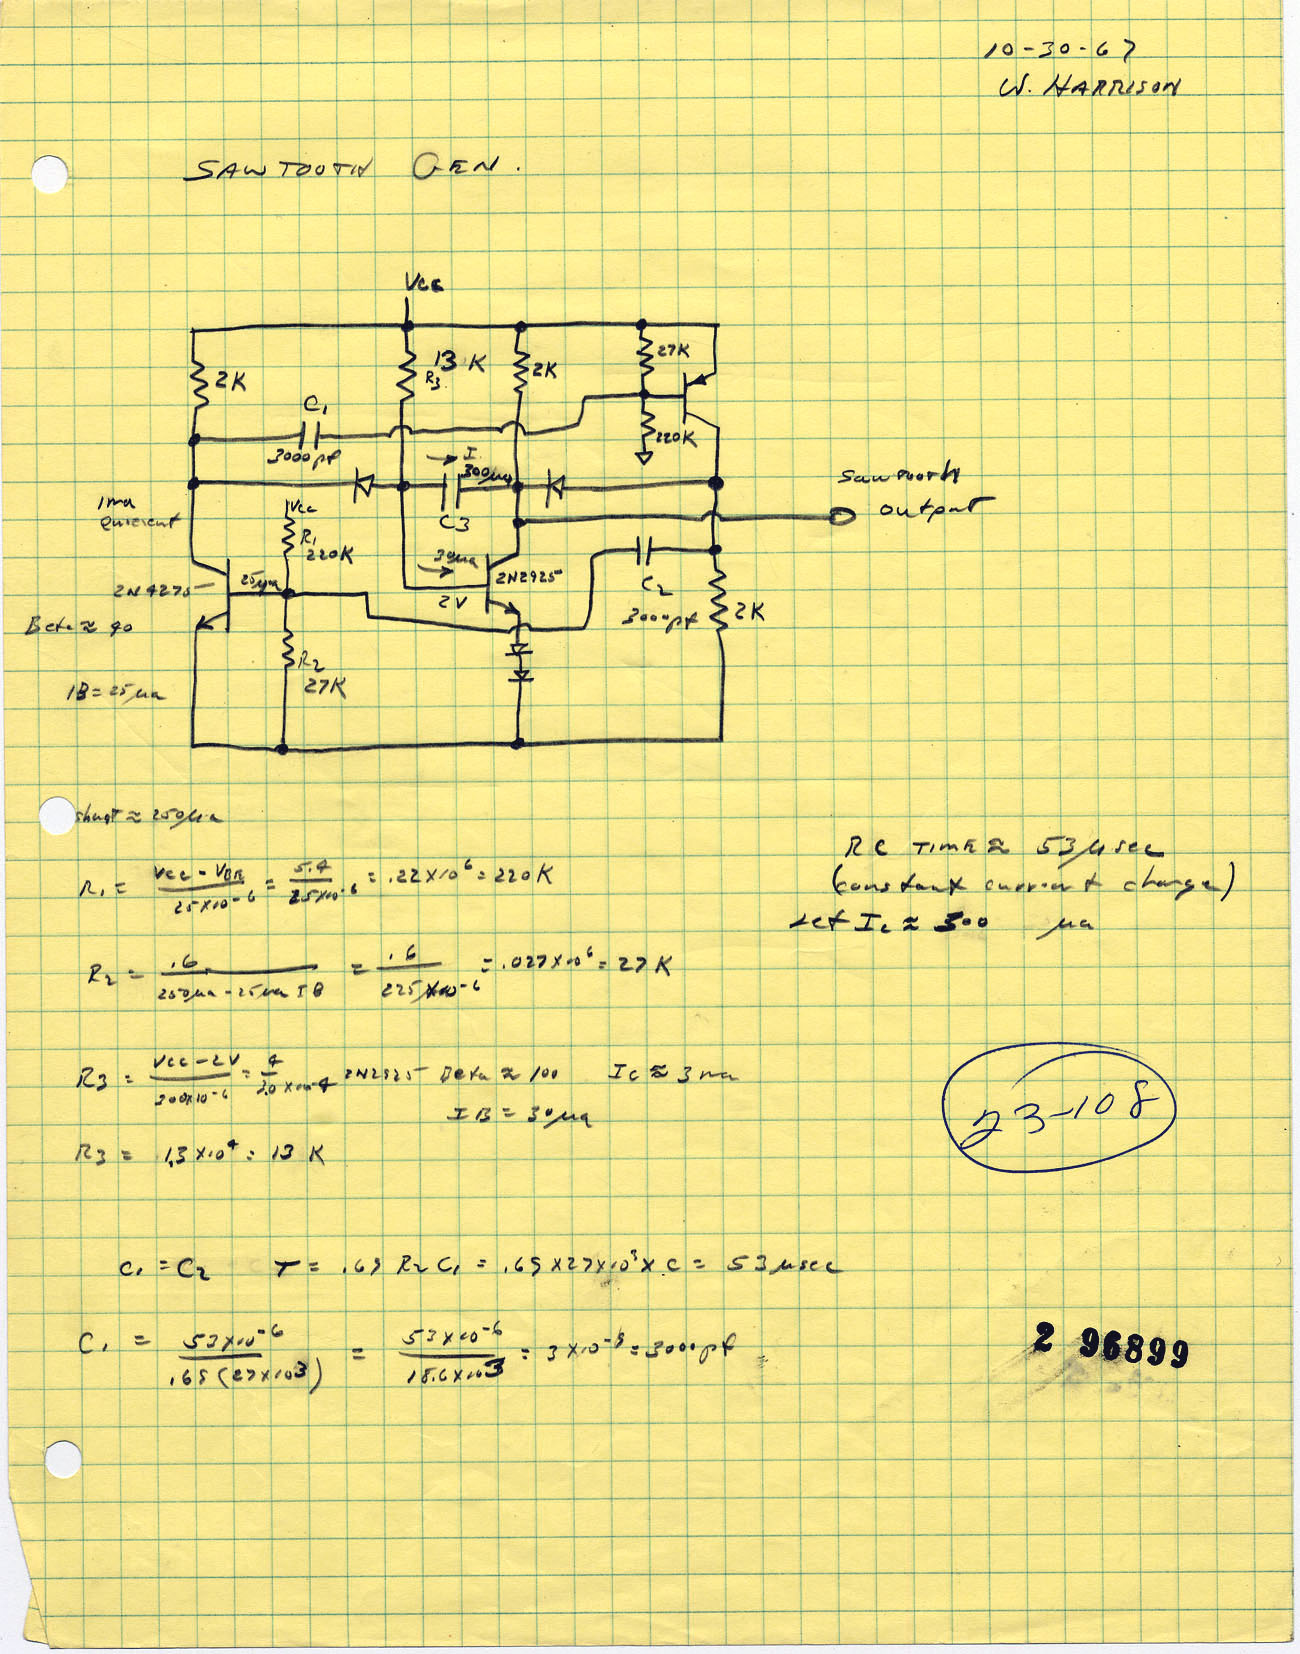 10-30-67
W. HARRISON
SAWTOOTH GEN.
Vcc
2K
13 K
R3
2K
27K
C1
3000pf
I
300μa
C3
220K
Sawtooth
output
1ma
quiescent
Vcc
R1
220K
25μa
30μa
2V
2N2925
2N4275
Beta ≈ 90
IB = 25μa
R2
27K
C2
3000pf
2K
shunt ≈ 250μa
R1 = Vcc - VBE / 25×10-6 = 5.4 / 25×10-6 = .22×10 6 = 220K
RC TIME ≈ 53μsec
(constant current charge)
Let Ic ≈ 300 μa
R2 = .6 / 250μa - 25μa IB = .6 / 225×10-6 = .027×10 6 = 27K
R3 = Vcc - 2V / 300×10-6 = 4 / 3.0×10-4 2N2925 Beta ≈ 100 Ic ≈ 3ma
IB = 30μa
R3 = 1.3×10 4 = 13 K
23-108
C1 = C2 T = .69 R2 C1 = .69×27×10 3 × C = 53μsec
C1 = 53×10-6 / .69(27×10 3) = 53×10-6 / 18.6×10 3 = 3×10-9 = 3000pf
2 96899